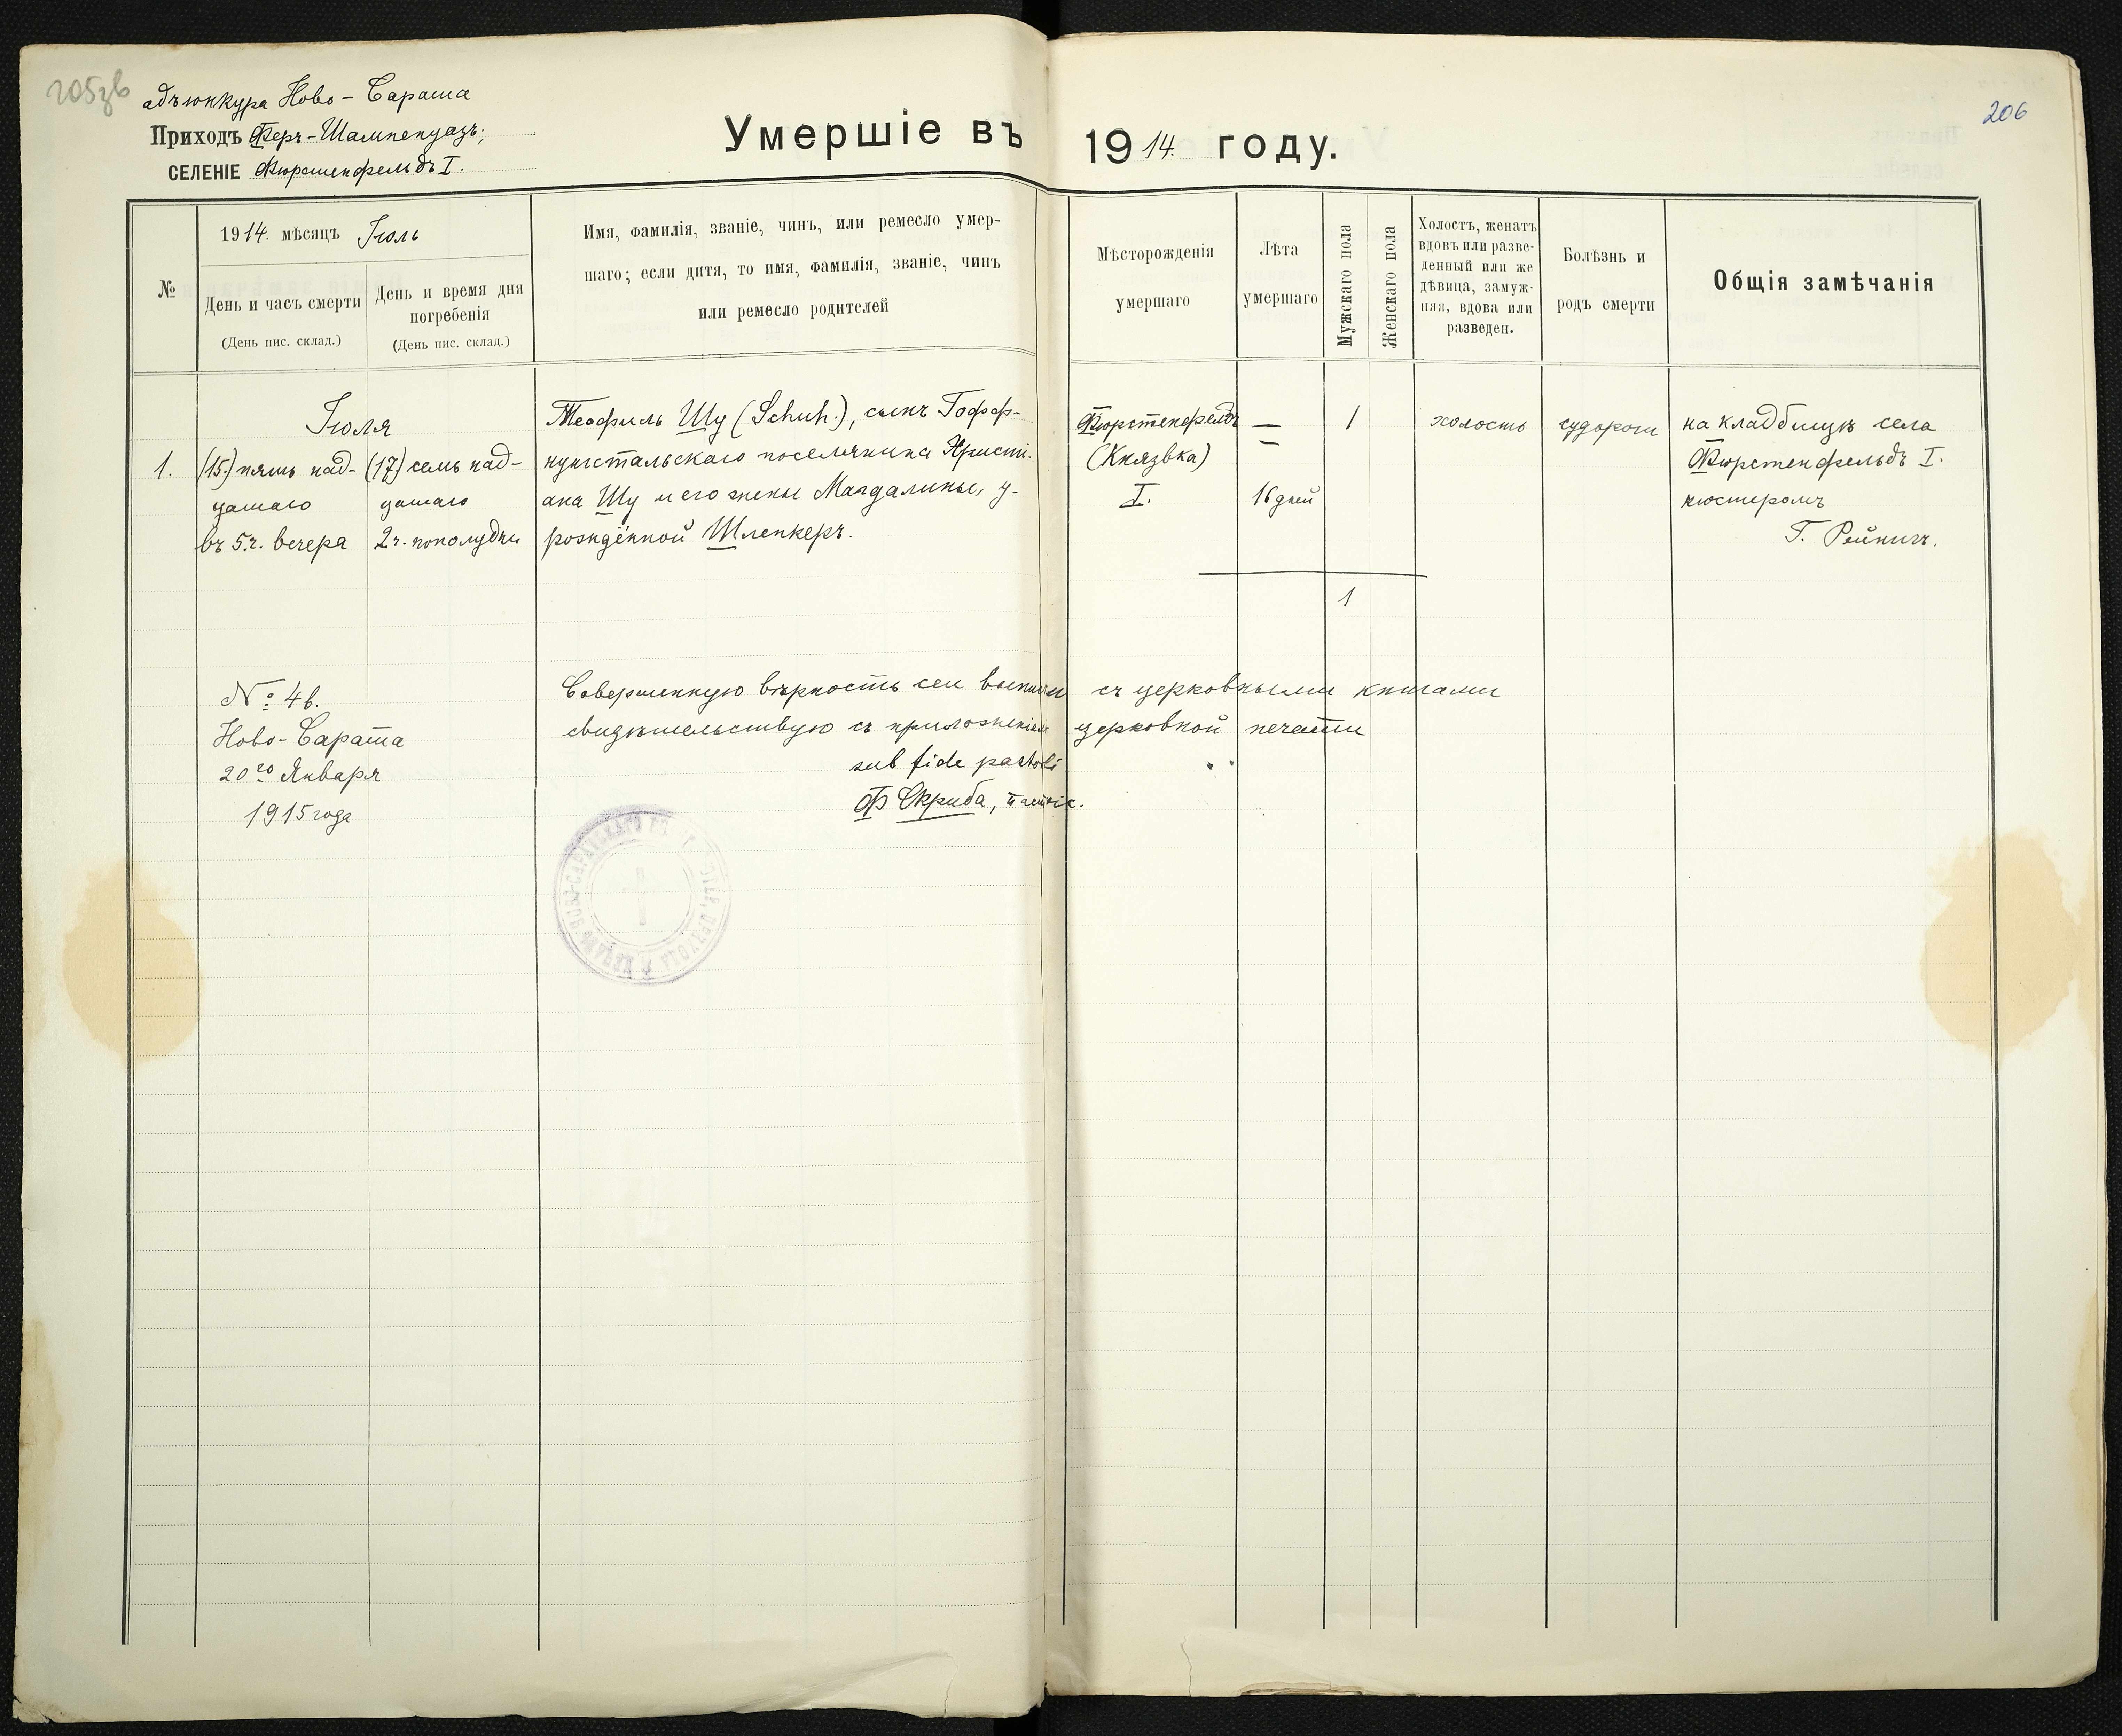 205зв
206
адъюнктура Ново-Сарата
Приходъ Феръ-Шампенуазъ;
СЕЛЕНІЕ Фюрстенфельдъ I.
Умершіе въ 1914. году.
№
1914. мѣсяцъ Іюль
День и часъ смерти
(День пис. склад.)
День и время дня
погребенія
(День пис. склад.)
Имя, фамилія, званіе, чинъ, или ремесло умер-
шаго; если дитя, то имя, фамилія, званіе, чинъ
или ремесло родителей
Мѣсторожденія
умершаго
Лѣта
умершаго
Мужскаго пола
Женскаго пола
Холостъ, женатъ
вдовъ или разве-
денный или же
дѣвица, замуж-
няя, вдова или
разведен.
Болѣзнь и
родъ смерти
Общія замѣчанія
Іюля
1.
(15) пять над-
цатаго
въ 5 ч. вечера
(17) семь над-
цатаго
2 ч. пополудни
Теофиль Шу (Schuh.), сынъ Гофф-
нунгстальскаго поселянина Христі-
ана Шу и его жены Магдалины, у-
рождённой Шленкеръ.
Фюрстенфельдъ
(Князвка)
I.
—
16 дней
1
холостъ
судороги
на кладбищѣ села
Фюрстенфельдъ I.
кюстеромъ
Г. Рейничъ.
1
№ 46.
Ново-Сарата
20го Января
1915 года
Совершенную вѣрность сей выписи съ церковными книгами
свидѣтельствую съ приложеніемъ церковной печати
sub fide pastorli
Ф Скриба, пастор.